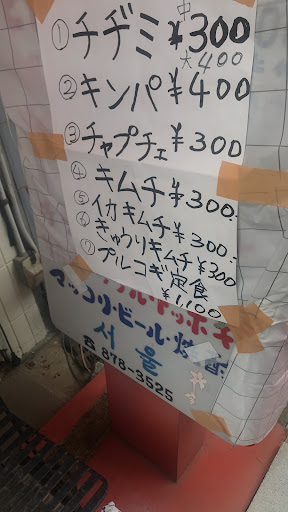 中
①チヂミ ¥300
大400
②キンパ ¥400
③チャプチェ ¥300
④キムチ ¥300.
⑤イカキムチ ¥300.
⑥きゅうりキムチ ¥300
⑦プルコギ定食
¥1,100
マッコリ・ビール・焼酎
서울
☎878-3525